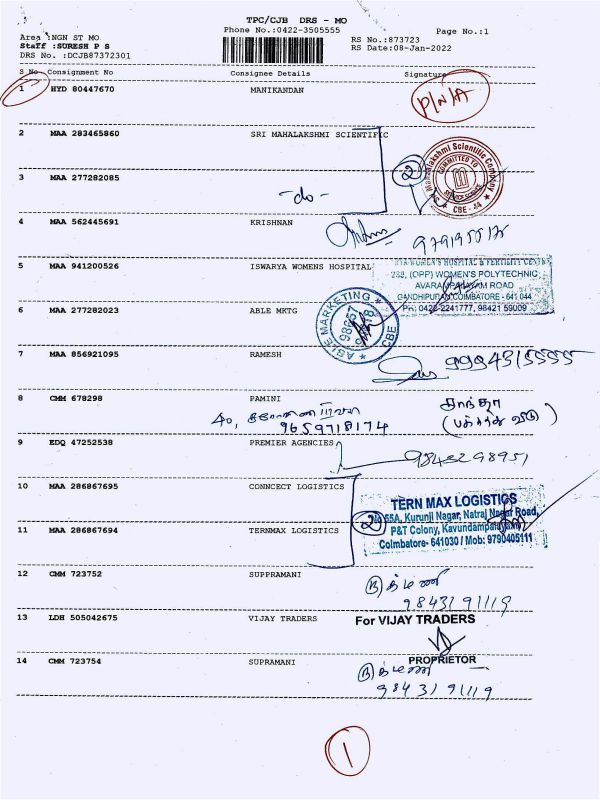 TPC/CJB DRS - MO
Phone No.:0422-3505555 Page No.:1
Area :NGN ST MO
Staff :SURESH P S
DRS No. :DCJB87372301
RS No.:873723
RS Date:08-Jan-2022
S No Consignment No Consignee Details Signature
1 HYD 80447670 MANIKANDAN P/N/A
2 MAA 283465860 SRI MAHALAKSHMI SCIENTIFIC
Mahalakshmi Scientific Company
COMMITTED TO
CBE - 44
2
3 MAA 277282085 -do-
4 MAA 562445691 KRISHNAN
5 MAA 941200526 ISWARYA WOMENS HOSPITAL
WOMEN'S HOSPITAL & FERTILITY
(OPP) WOMEN'S POLYTECHNIC
AVARAMPALAYAM ROAD
GANDHIPURAM, COIMBATORE - 641 044
Ph: 0422-2241777, 98421 59009
6 MAA 277282023 ABLE MKTG
ABLE MARKETING
CBE
7 MAA 856921095 RAMESH 9994315555
8 CMM 678298 PAMINI
9659718174
9 EDQ 47252538 PREMIER AGENCIES 9843298951
10 MAA 286867695 CONNCECT LOGISTICS
TERN MAX LOGISTICS
55A, Kurunji Nagar, Natraj Nagar Road,
P&T Colony, Kavundampalayam
Coimbatore- 641030 / Mob: 9790405111
2
11 MAA 286867694 TERNMAX LOGISTICS
12 CMM 723752 SUPPRAMANI
9843191119
13 LDH 505042675 VIJAY TRADERS For VIJAY TRADERS
PROPRIETOR
14 CMM 723754 SUPRAMANI
9843191119
1